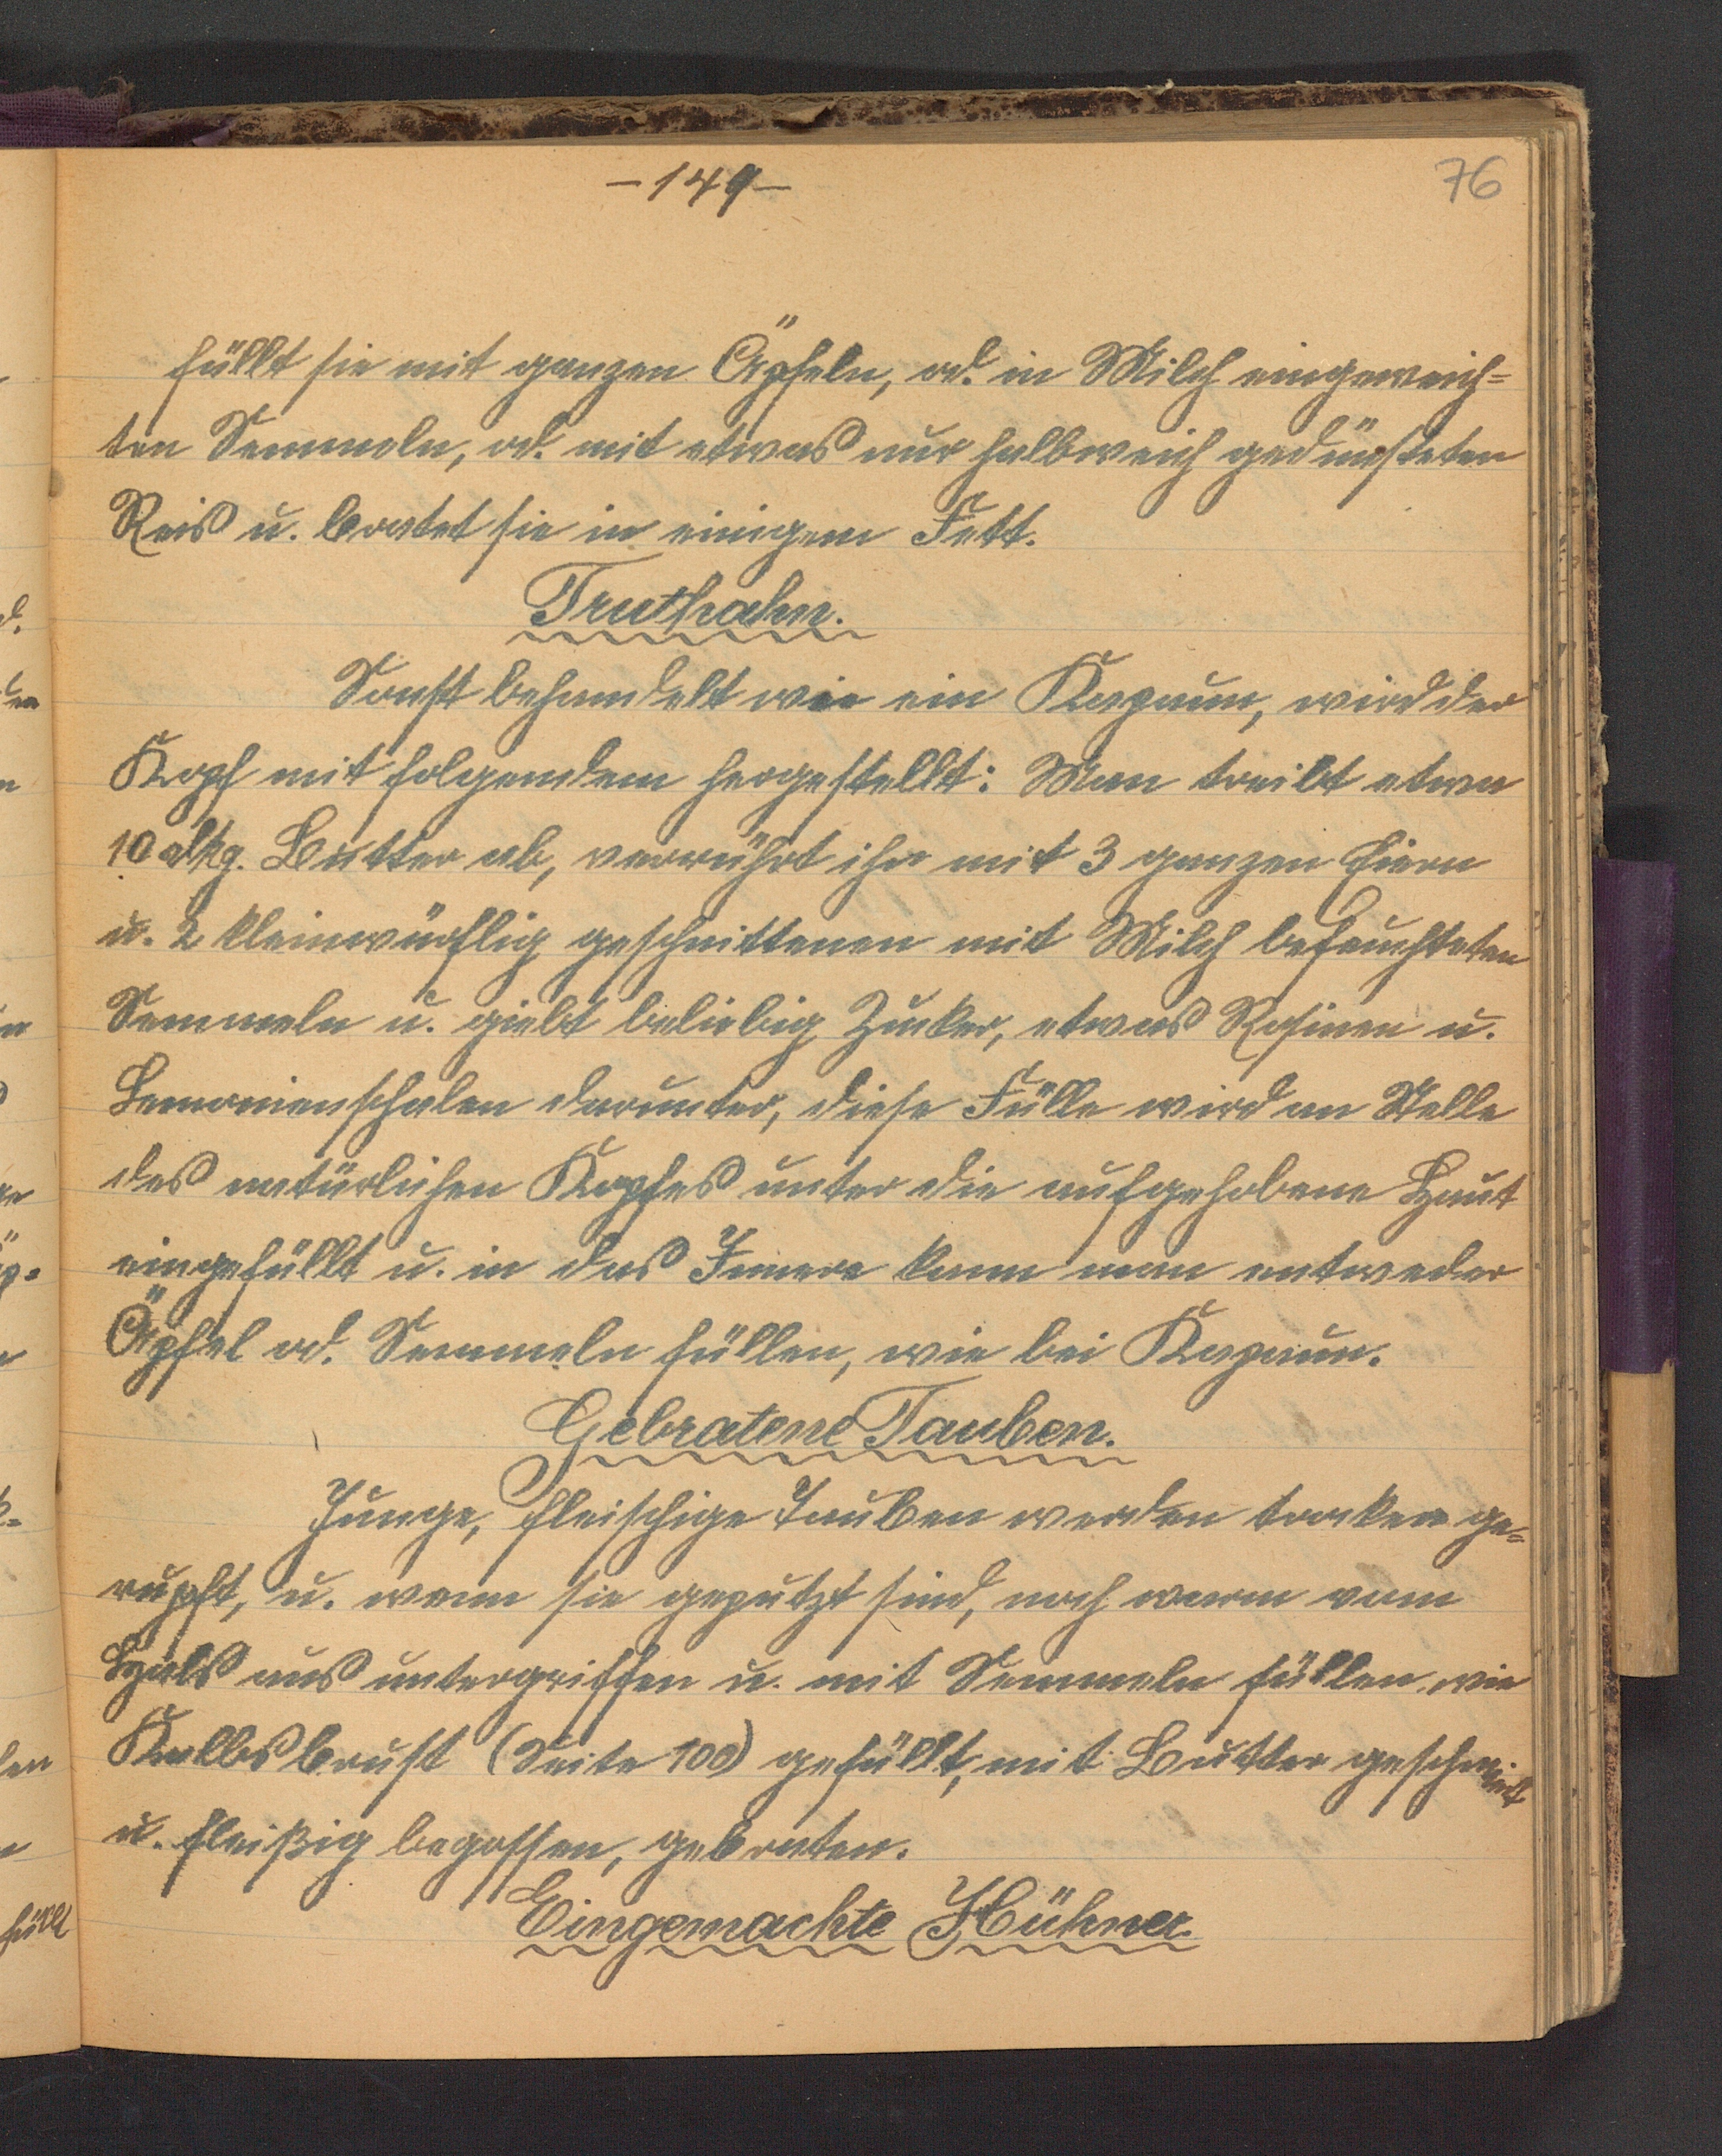 -149-
76
füllt sie mit ganzen Äpfeln, od. in Milch eingeweich=
ten Semmeln, od. mit etwas nur halbweich gedünsteten
Reis u. bratet sie in einigem Fett.
Truthahn.
Sonst behandelt wie ein Kapaun, wird der
Kropf mit folgendem hergestellt: Man treibt etwa
10 dkg. Butter ab, verrührt ihn mit 3 ganzen Eiern
u. 2 kleinwürflig geschnittenen mit Milch befeuchteten
Semmeln u. giebt beliebig Zucker, etwas Rosinen u.
Lemonienschalen darunter, diese Fülle wird an Stelle
des natürlichen Kropfes unter die aufgehobene Haut
eingefüllt u. in das Innere kann man entweder
Äpfel od. Semmeln füllen, wie bei Kapaun.
Gebratene Tauben.
Junge, fleischige Tauben werden trocken ge=
rupft, u. wenn sie geputzt sind, noch warm vom
Hals aus untergriffen u. mit Semmeln füllen wie
Kalbsbrust (Seite 100) gefüllt, mit Butter
u. fleißig begossen, gebraten.
Eingemachte Hühner.